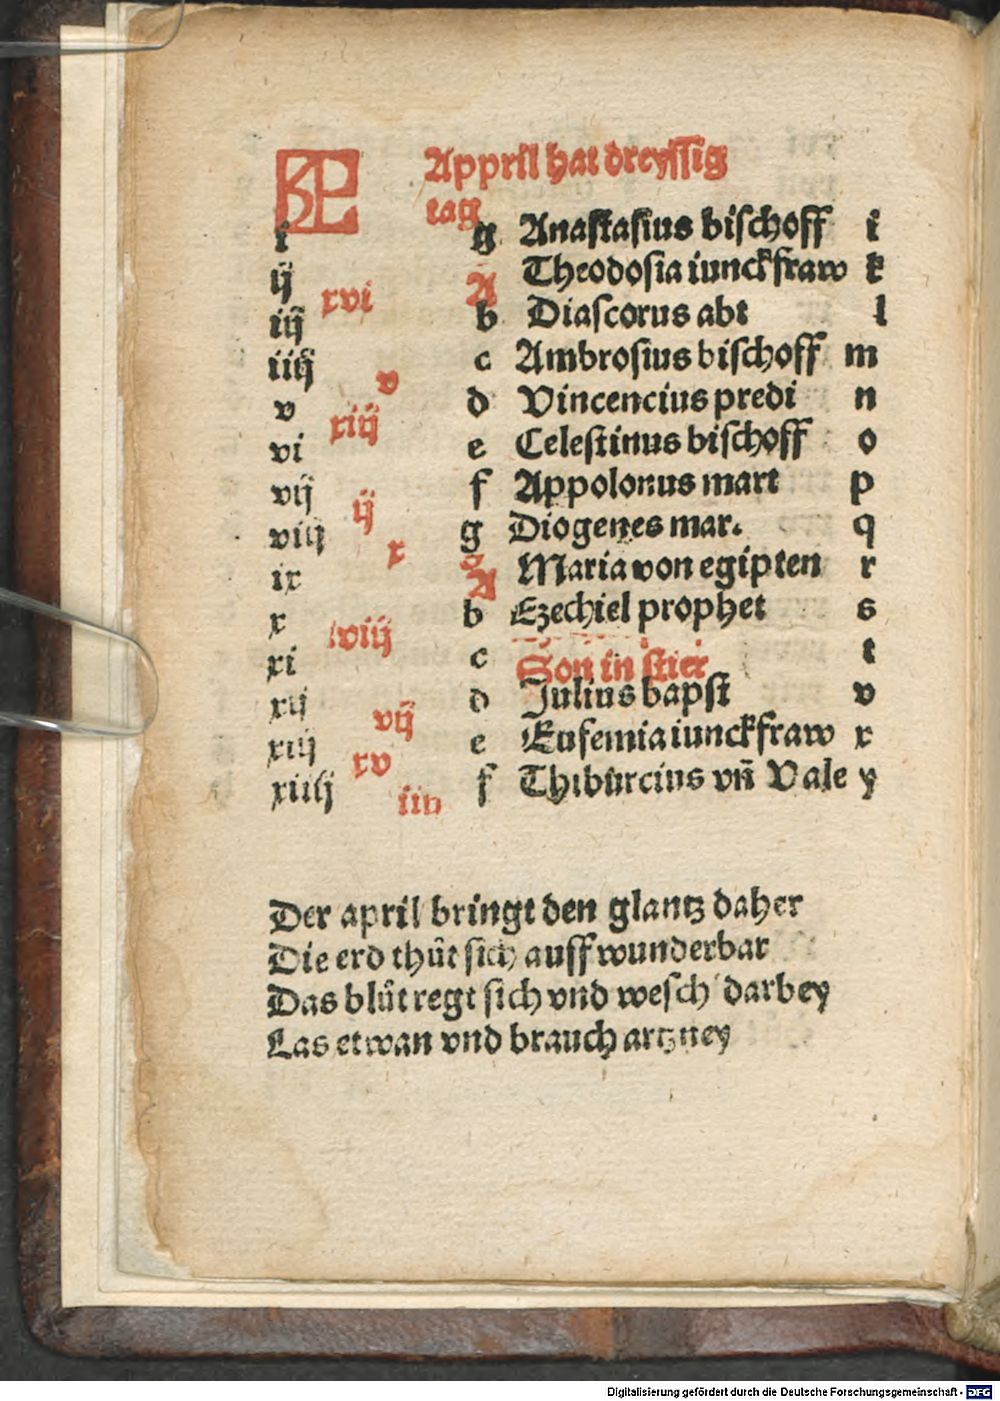 KL Appril hat dreyssig
tag
i g Anastasius bischoff i
ij xvi A Theodosia iunckfraw k
iij b Diascorus abt l
iiij v c Ambrosius bischoff m
v xiij d Vincencius predi n
vi e Celestinus bischoff o
vij ij f Appolonus mart p
viij x g Diogenes mar. q
ix A Maria von egipten r
x xviij b Ezechiel prophet s
xi c Son in stier t
xij vij d Julius bapst v
xiij xv e Eufemia iunckfraw x
xiiij iiij f Thiburcius vn̄ Vale y
Der april bringt den glantz daher
Die erd thůt sich auff wunderbar
Das blůt regt sich vnd wesch darbey
Las etwan vnd brauch artzney
Digitalisierung gefördert durch die Deutsche Forschungsgemeinschaft - DFG